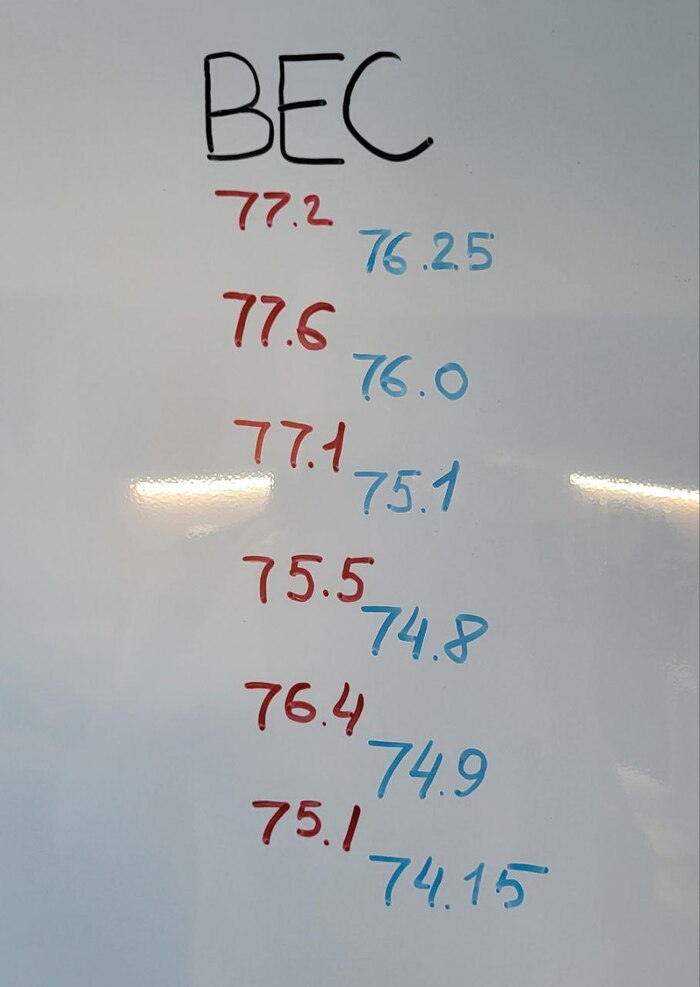 ВЕС
77.2
76.25
77.6
76.0
77.1
75.1
75.5
74.8
76.4
74.9
75.1
74.15